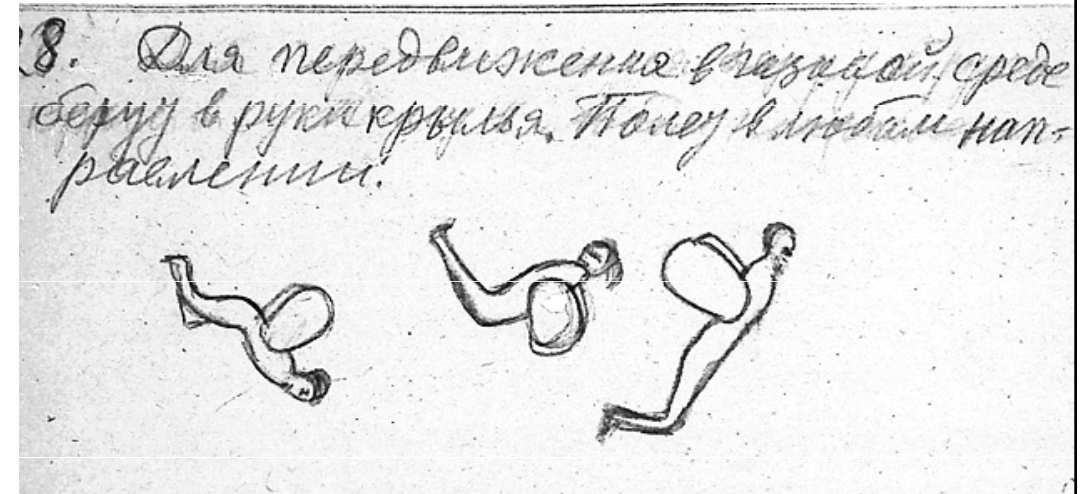 8. Для передвижения в газовой среде
берут в руки крылья. Полет в любом нап-
равлении.